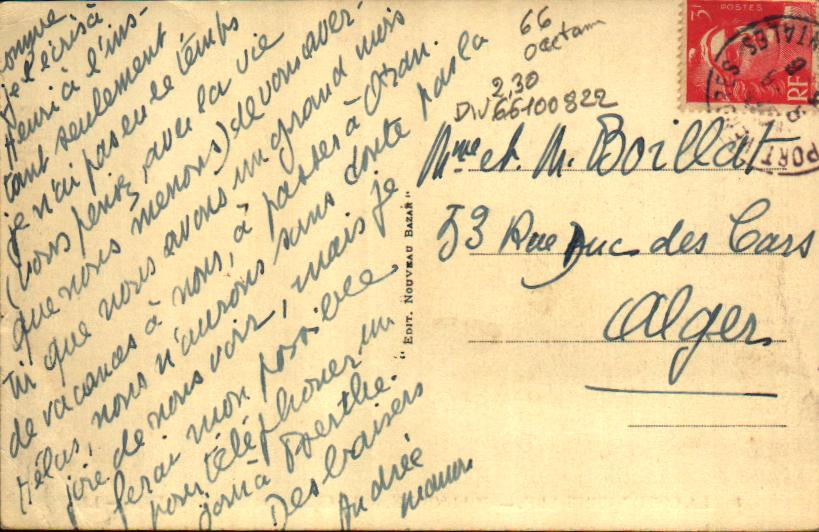 comme
je l'écris à
Henri à l'ins-
tant seulement
je n'ai pas eu le temps
(vous pensez, avec la vie
que nous menons) de vous aver-
tir que nous avons un grand mois
de vacances à nous, à passer à Oran.
Hélas, nous n'aurons sans doute pas la
joie de nous voir, mais je
ferai mon possible
pour téléphoner un
jour à Berthe.
Des baisers
Andrée
66
2,30
DIV66100822
Mme et M. Boillat
53 Rue Duc des Cars
Alger
" EDIT. NOUVEAU BAZAR "
3F
POSTES
RF
PORT VENDRES